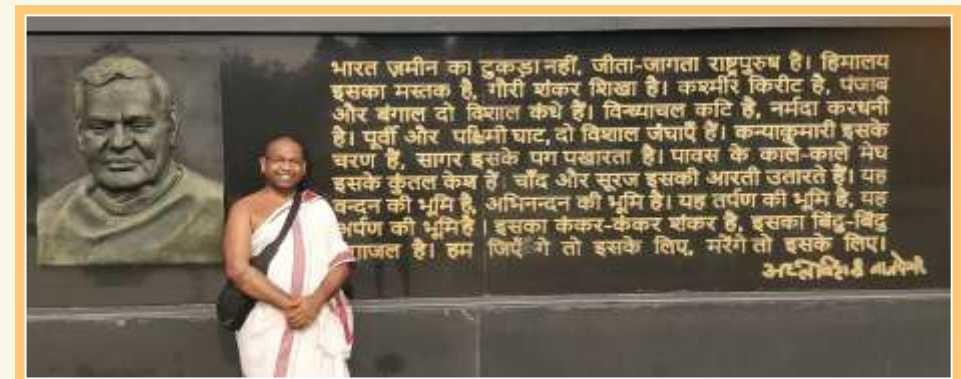 भारत ज़मीन का टुकड़ा नहीं, जीता-जागता राष्ट्रपुरुष है। हिमालय
इसका मस्तक है, गौरी शंकर शिखा है। कश्मीर किरीट है, पंजाब
और बंगाल दो विशाल कंधे हैं। विन्ध्याचल कटि है, नर्मदा करधनी
है। पूर्वी और पश्चिमी घाट, दो विशाल जंघाएँ हैं। कन्याकुमारी इसके
चरण हैं, सागर इसके पग पखारता है। पावस के काले-काले मेघ
इसके कुंतल केश हैं। चाँद और सूरज इसकी आरती उतारते हैं। यह
वन्दन की भूमि है, अभिनन्दन की भूमि है। यह तर्पण की भूमि है, यह
अर्पण की भूमि है। इसका कंकर-कंकर शंकर है, इसका बिंदु-बिंदु
है। हम जिएँगे तो इसके लिए, मरेंगे तो इसके लिए।
अटल बिहारी वाजपेयी